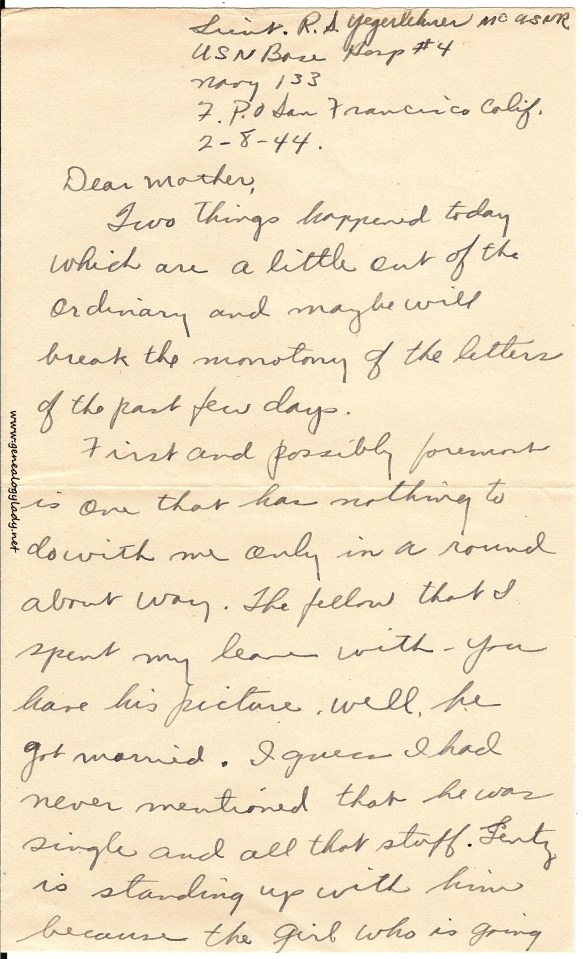 Lieut. R. S. Yegerlehner MC USNR
USN Base Hosp #4
Navy 133
F. P.O San Francisco Calif.
2-8-44.
Dear Mother,
Two things happened today
which are a little out of the
ordinary and maybe will
break the monotony of the letters
of the past few days.
First and possibly foremost
is one that has nothing to
do with me only in a round
about way. The fellow that I
spent my leave with - you
have his picture. well, he
got married. I guess I had
never mentioned that he was
single and all that stuff.
is standing up with him
because the girl who is going
www.genealogylady.net